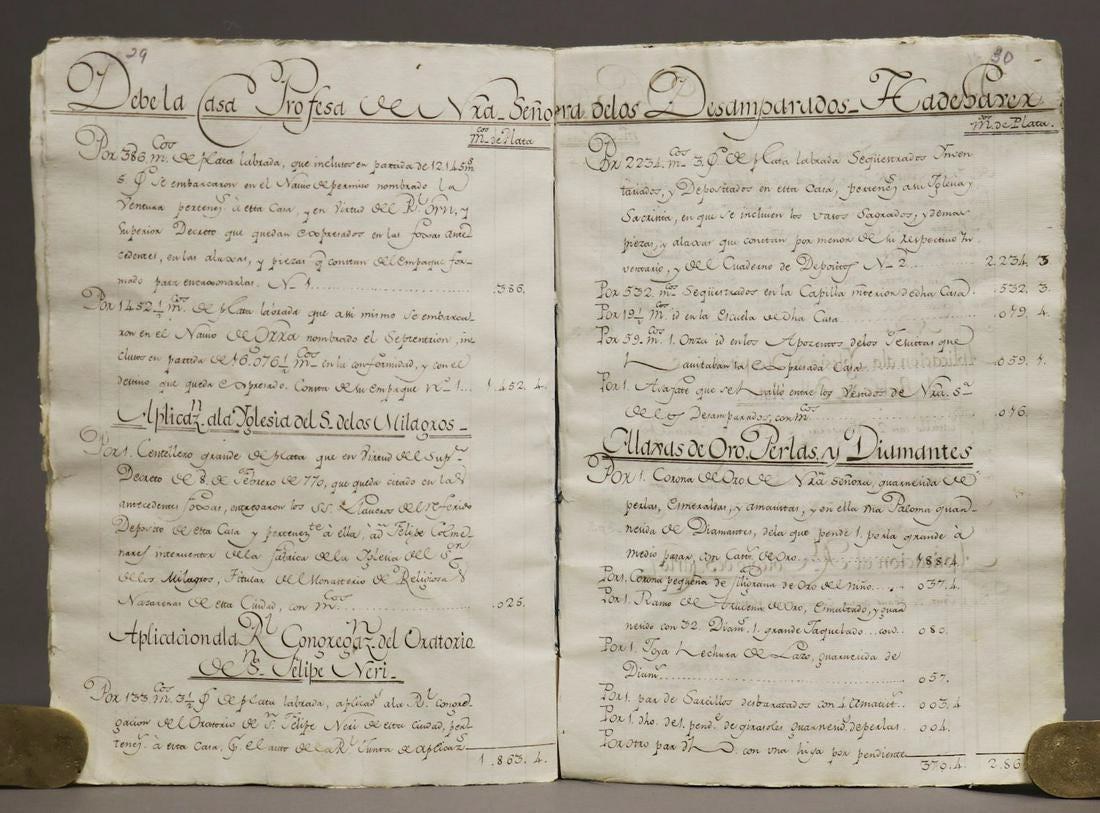 29
Debe la Casa Profesa de Nra Señora de los Desamparados_ Ha de haver
m.cos de Plata
Por 386 m.cos de plata labrada, que inclusos en partida de 12.145 ms
5. 8 Se embarcaron en el Navio de permiso nombrado la
Ventura pertenez. à esta Casa, y en virtud del Rl. Orn, y
Superior Decreto que quedan expresados en las foxas ante
cedentes, en las alaxas, y piezas q constan del Empaque for-
mado para encaxonarlas. N_1 .386.
Por 1452.½ m.cos de plata labrada que asi mismo se embarca
ron en el Navio de Grra nombrado el Septentrion, in
clusos en partida de 16.576½ m.cos en la conformidad, y con el
destino que queda expresado. Consta de su Empaque Nro 1 1.452. 4.
Aplicazn. ala Iglesia del S. de los Milagros_
Por 1. Centellero grande de plata que en virtud del Supr.
Decreto de 8. de Febrero de 770, que queda citado en las
antecedentes foxas, entregaron los SS. Llaveros del referido
Deposito de esta Casa y perteneze à ella, à Dn Felipe Colme
nares interventor de la fabrica de la Iglesia del Sr
de los Milagros, Titular del Monasterio de Religiosas
Nasarenas de esta Ciudad, con m.cos .025.
Aplicacion ala Rl Congregazn. del Oratorio
de Sn. Felipe Neri_
Por 133 m.cos 3½ 8 de plata labrada, aplicads ala Rl Congre
gacion del Oratorio de Sn. Felipe Neri de esta ciudad, per
tenez. à esta Casa, p. el auto de la Rl Junta de aplicaz
1.863. 4.
30
m.cos de Plata.
Por 2234. m.cos 3. 8 de plata labrada Seqüestrados Inven
tariados, y Depositados en esta Casa, pertenez. a su Iglesia y
Sacristia, en que se incluien los vasos Sagrados, y demas
piezas, y alaxas que constan por menor de su respectivo In
ventario, y del Cuaderno de Depositos N_2 2.234. 3
Por 532. m.cos Seqüestrados en la Capilla interior de dha Casa .532. 3.
Por 19½ m.cos id en la Escuela de dha Casa .079. 4.
Por 59. m.cos 1. Onza id en los Aposentos de los Jesuitas que
havitaban la expresada Casa .059. 1.
Por 1. Asafate que se halló entre los Vestidos de Nra. Sa
de los Desamparados, con m.cos .016.
Allaxas de Oro, Perlas, y Diamantes
Por 1. Corona de Oro de Nra Señora, guarnecida de
perlas, Esmeraldas, y amatistas, y en ella una Paloma guar
nesida de Diamantes, de la que pende 1. perla grande à
medio pasar, con Casts. de Oro. 188.4.
Por 1. Corona pequeña de filigrana de Oro del niño 037.4.
Por 1. Ramo de Azucena de Oro, Esmaltado, y guar
nesido con 32. Diam. 1. grande Jaquelado con 080.
Por 1. Joya hechura de Lazo, guarnecida de
Diam. 057.
Por 1. par de Sarcillos desbaratados con 4 amatist. 003.4
Por 1. dho. de 1. pend. de girasoles guarnesd. de perlas. 004.
Por otro par con una higa por pendiente
379.4. 2.86